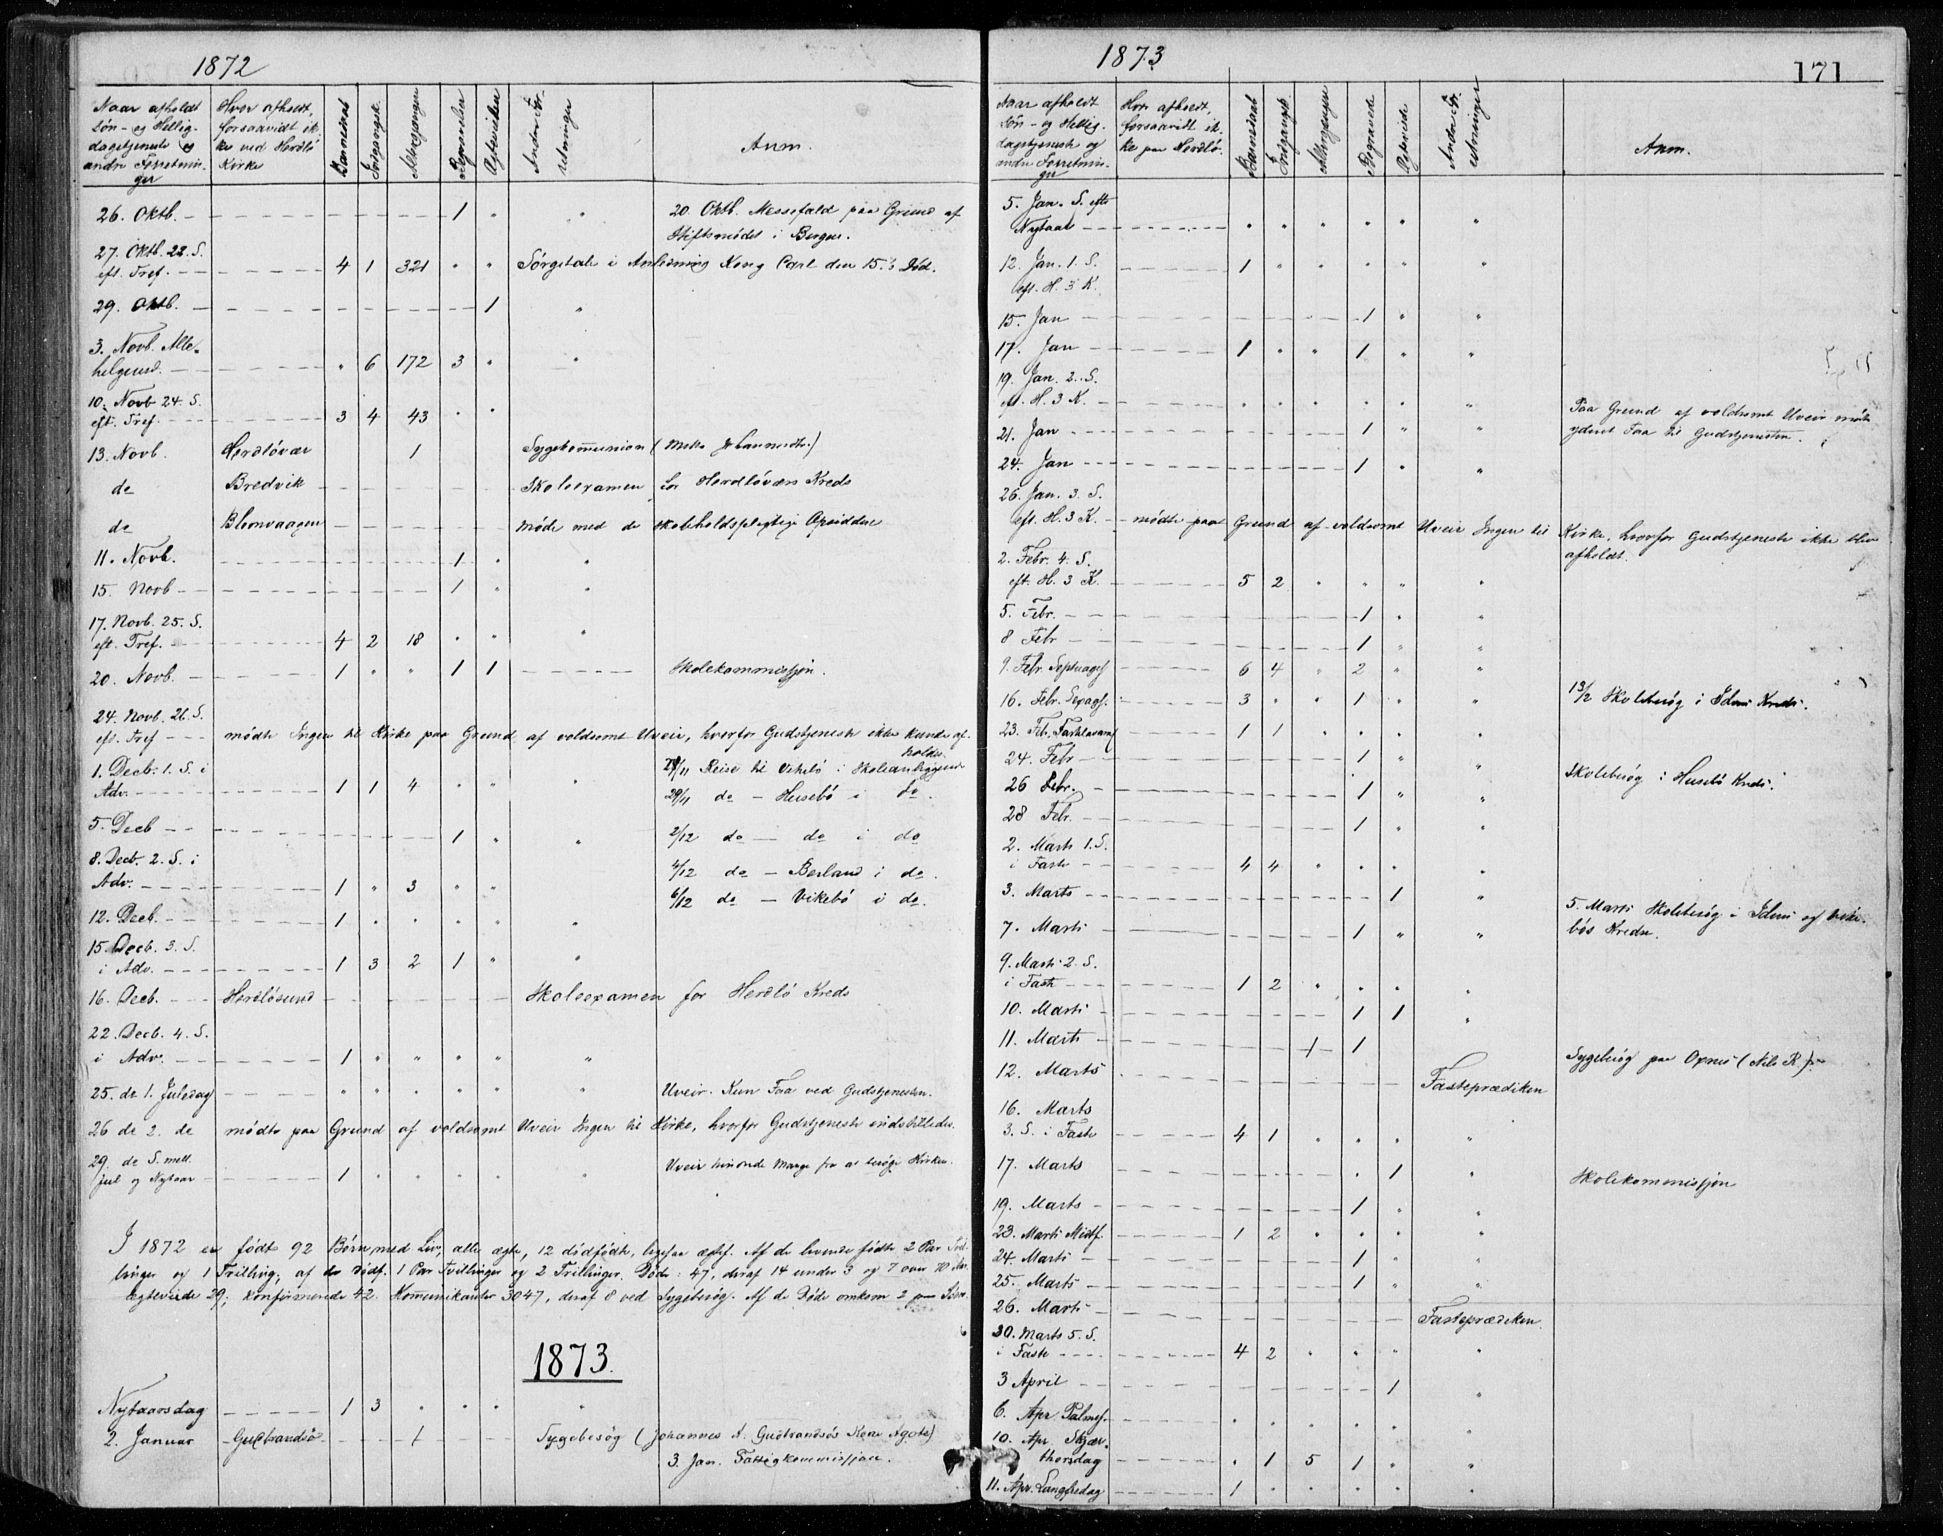 1872
Naar afholdt Søn- og Helligdagstjeneste og andre Forretninger | Hvor afholdt, forsaavidt ikke ved Herdlø Kirke | Barnedaab | Introduc. | Altergang | Begravelser | Ægtevielser | Andre Forretninger | Anm.
26. Oktb. – 1 " " 20. Oktb. Messefald paa Grund af
Stiftsmødet i Bergen.
27. Oktb. 22. S.
eft. Tref. – 4 1 321 " " Sørgetale i Anledning Kong Carl den 15.s Død.
29. Oktb. – 1 "
3. Novb. Alle-
helgensd. – " 6 172 3 " "
10. Novb 24. S.
eft. Tref. – 3 4 43 " "
13. Novb. Herdløvær 1 Sygekommunion (Johannesdtr.)
do Bredvik – Skoleexamen for Herdløvær Kreds
do Blomvaagen – Møde med de skoleholdspligtige Opsiddere
11. Novb. – 1 " "
15. Novb – 1 " "
17. Novb. 25. S.
eft. Tref. – 4 2 18 " " "
20. Novb. – 1 " " 1 1 – Skolekommission.
24. Novb. 26. S.
eft. Tref – mødte Ingen til Kirke paa Grund af voldsomt Uveir, hvorfor Gudstjeneste ikke kunde af-
holdes.
1. Decb. 1. S. i
Adv. – 1 1 4 " " " 28/11 Reise til Vikebø i Skoleanliggende
29/11 do – Husebø i do.
5. Decb – 1 " " 2/12 do – do i do
8. Decb. 2. S. i
Adv. – 1 " 3 " " 4/12 do – Berland i do.
6/12 do – Vikebø i do.
12. Decb. – 1 " " " " "
15. Decb. 3. S.
i Adv. – 1 3 2 1 " "
16. Decb. – Herdløsund – Skoleexamen for Herdlø Kreds
22. Decb. 4. S.
i Adv. – 1 " " " " "
25. do 1. Juledag " " " " " Uveir. Kun Faa ved Gudstjenesten.
26 do 2. do mødte paa Grund af voldsomt Uveir Ingen til Kirke, hvorfor Gudstjeneste indstilledes.
29. do S. mell.
Jul og Nytaar – 1 " " " " " Uveir hindrede Mange fra at besøge Kirken.
I 1872 er født 92 Børn med Liv, alle ægte, 12 dødfødte, ligesaa ægtef. Af de levende fødte 2 Par Tvil-
linger og 1 Trilling, af de dødf. 1 Par Tvillinger og 2 Trillinger. Døde: 47, deraf 14 under 3 og 7 over 70 Aar.
Ægteviede 29; Konfirmerede 42. Kommunikanter 3047, deraf 8 ved Sygebesøg. Af de Døde omkom 2 paa Søen.
1873.
Nytaarsdag – 1 3 " " " "
2. Januar – Gudbrandsø – 1 Sygebesøg (Johannes A. Gudbrandsøs Kone Agote)
3. Jan. Fattigkommission.
1873
171
Naar afholdt Søn- og Helligdagstjeneste og andre Forretninger | Hvor afholdt, forsaavidt ikke paa Herdlø. | Barnedaab | Introduc. | Altergang | Begravede | Ægteviede | Andre Forretninger | Anm.
5. Jan. S. efter
Nytaar – " " " " " "
12. Jan. 1. S.
eft. H. 3 K. – 1 " " " " "
15. Jan – 1 " "
17. Jan – 1 " " 1 " "
19. Jan. 2. S.
eft. H. 3 K. – " " " " " " Paa Grund af voldsomt Uveir mødte
yderst Faa til Gudstjenesten.
21. Jan – 1 " "
24. Jan – 1 " "
26. Jan. 3. S.
eft. H. 3 K. – mødte paa Grund af voldsomt Uveir Ingen til Kirke, hvorfor Gudstjeneste ikke blev
afholdt.
2. Febr. 4. S.
eft. H. 3 K. – 5 2 " " " "
5. Febr. – 1 "
8 Febr – 1 " "
9. Febr. Septuages – 6 4 " 2 " "
16. Febr. Sexages. – 3 " " 1 " " 13/2 Skolebesøg i Kreds.
23. Feb. Fastelavns – 1 1 " " " "
24. Febr – 1 " "
26 Febr. – 1 " " Skolebesøg i Husebø Kreds.
28 Febr. – 1 " "
2. Marts 1. S.
i Faste – 4 4 " " " "
3. Marts – 1 "
7. Marts – 1 " " 5. Marts Skolebesøg i og Vike-
bøs Kredse.
9. Marts 2. S.
i Faste – 1 2 " " " "
10. Marts – 1 1 "
11. Marts – 1 1 Sygebesøg paa Oxnes (Nils R.)
12. Marts – Fasteprædiken
16. Marts
3. S. i Faste – 4 1 " " " "
17. Marts – " 1 " Skolekommission
19. Marts – 1 " "
23. Marts Midf. – 1 2 " " " "
24. Marts – 1 " "
25. Marts – 1 " "
26. Marts – Fasteprædiken.
30. Marts 5. S.
i Faste – 4 2 " " " "
3 April – 1 "
6. Apr. Palmes. – " " " " " "
10. Apr. Skjær-
thorsdag – " 1 5 1 " "
11. Apr. Langfredag – 1 " " " " "